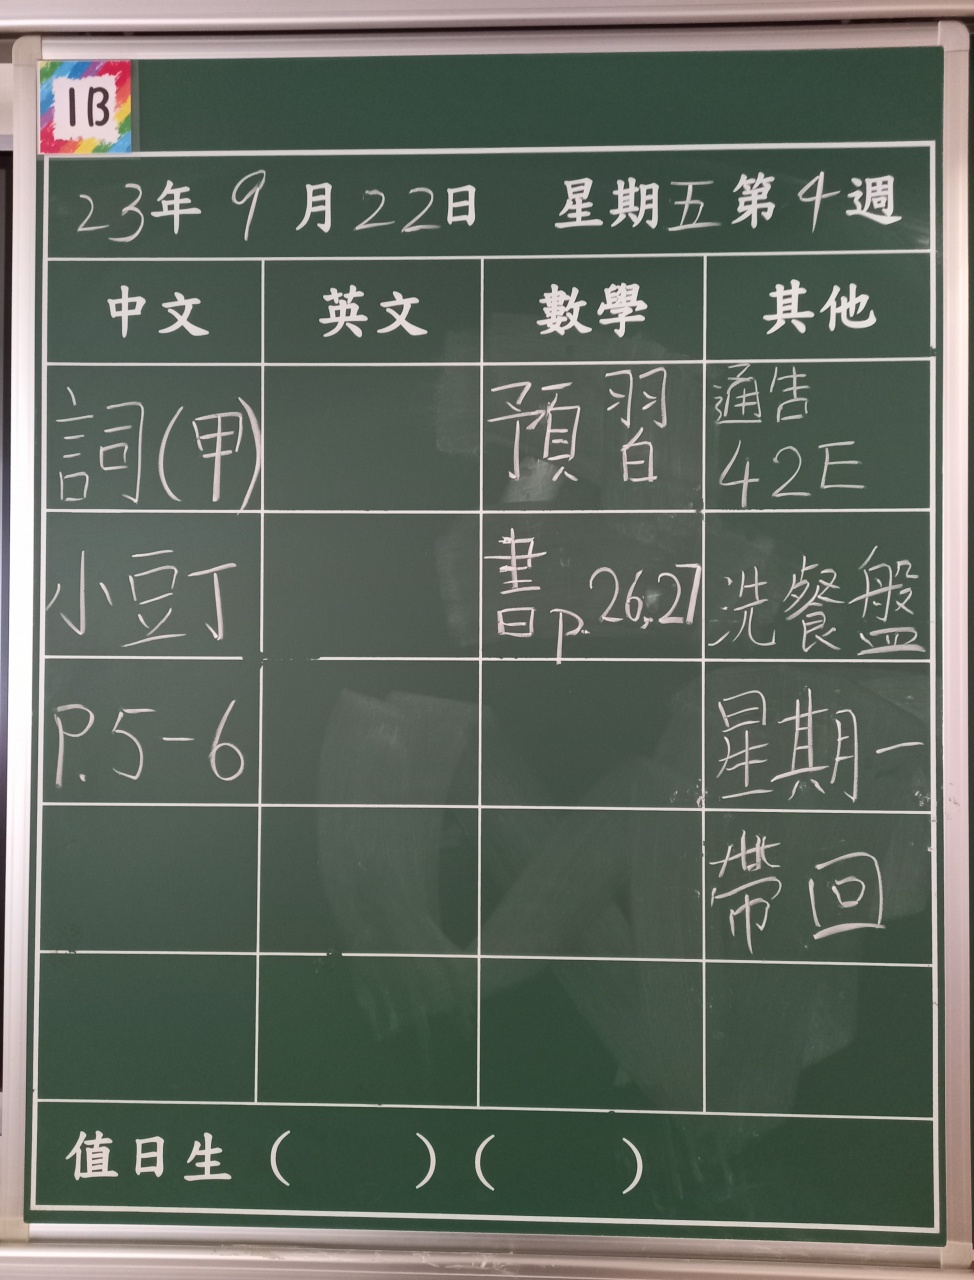 1B
23年9月22日 星期五第4週
中文 英文 數學 其他
詞(甲) 預習 通告
42E
小豆丁 書p.26,27 洗餐盤
P.5-6 星期一
帶回
值日生( )( )